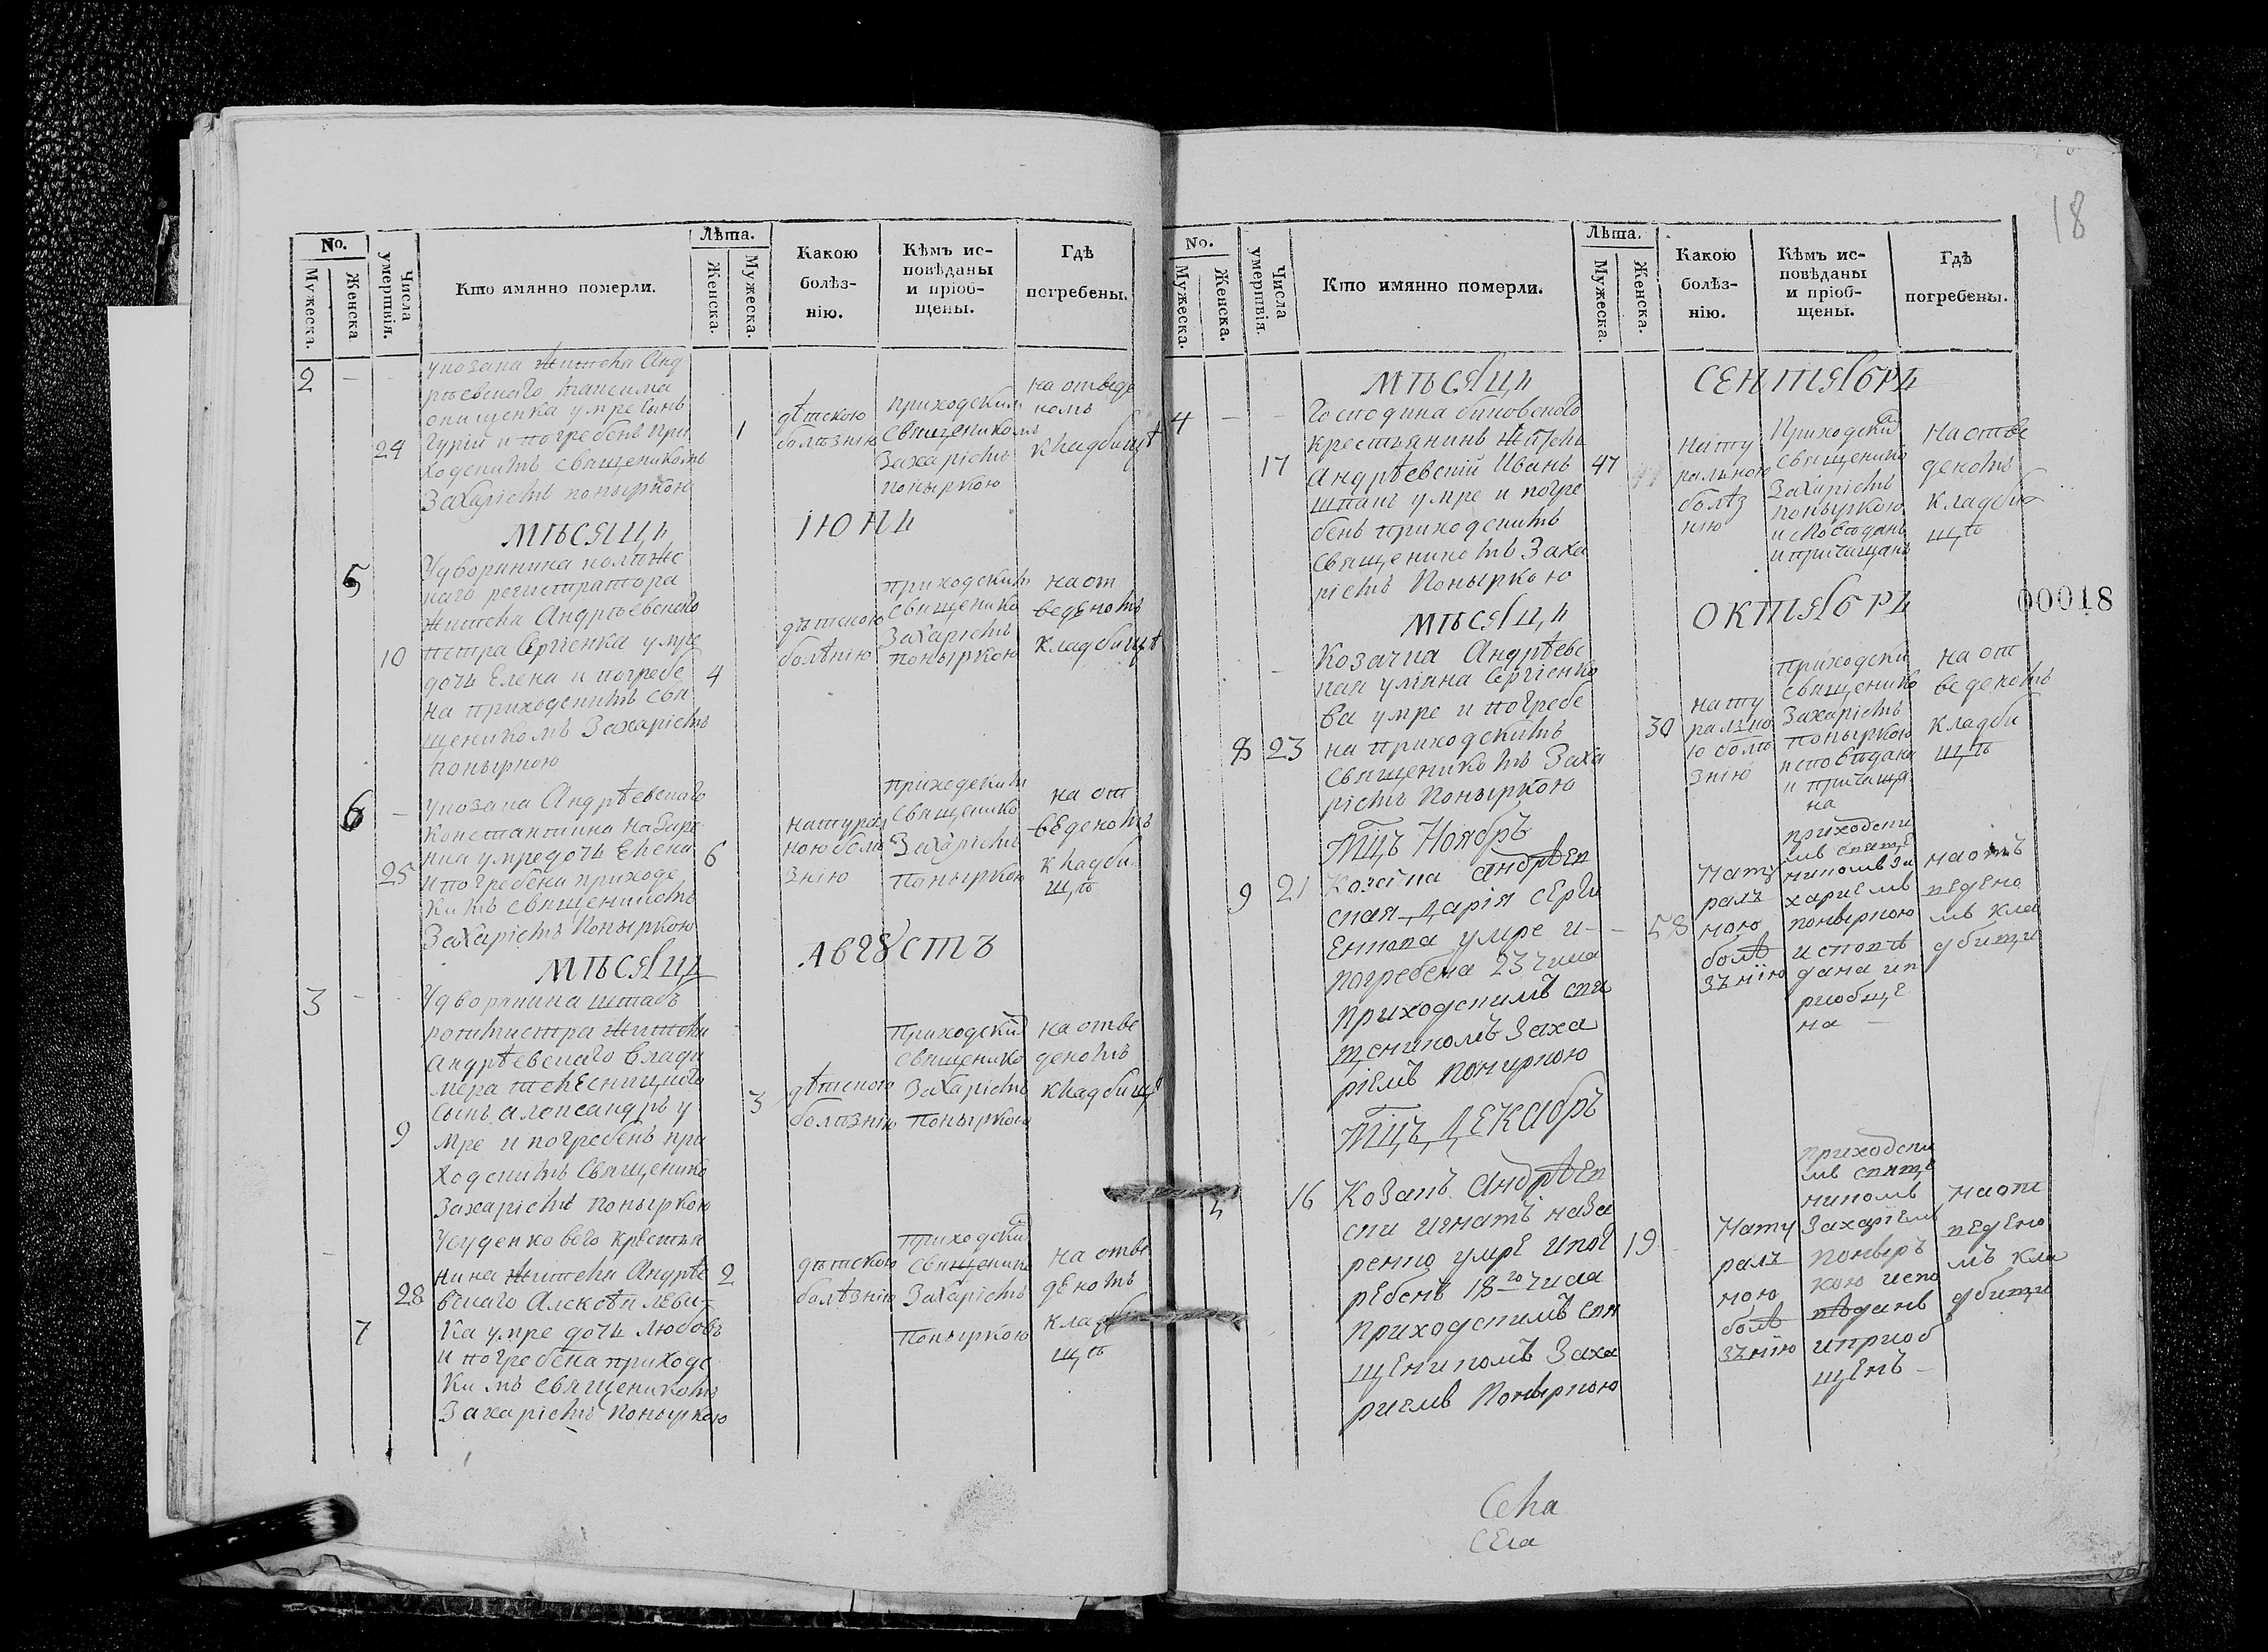 No.
Мужеска.
Женска
Числа умершвія.
Кто имянно померли.
Лѣта.
Женска.
Мужеска.
Какою болѣз-нію.
Кѣмъ ис-повѣданы и пріоб-щены.
Гдѣ погребены.
2
24
умре сынъ
Гурій и погребенъ при
ходскимъ священикомъ
Захаріемъ Поныркою
1
дѣтскою
болѣзнію
приходским
священикомъ
Захаріемъ
Поныркою
на отведе
номъ
кладбищѣ
МѢСЯЦЬ ІЮНЬ
5
10
У дворянина колѣжс
каго регистратора
жителя Андрѣевского
Петра Сергіенка умре
дочь Елена и погребе
на приходскимъ свя
щеникомъ Захаріемъ
Поныркою
4
дѣтскою
болѣнію
приходскимъ
священико
Захаріемъ
Поныркою
на от
веденомъ
кладбищѣ
6
25
у козака Андрѣевского
Константина Назаре
нка умре дочь Елена
и погребена приходс
кимъ священикомъ
Захаріемъ Поныркою
6
натурал
ною болѣ
знію
приходским
священико
Захаріемъ
Поныркою
на от
веденомъ
кладби
щѣ
МѢСЯЦЬ АВГУСТЪ
3
9
У дворянина штабъ
ротмистра жителя
Андрѣевского Влади
мера
сынъ Александръ у
мре и погребенъ при
ходскимъ священико
Захаріемъ Поныркою
3
дѣтскою
болѣзнію
Приходский
священико
Захаріемъ
Поныркою
на отве
деномъ
кладбищѣ
7
28
крестья
нина жителя Андрѣе
вского Алексѣя Леви
ка умре дочь Любовъ
и погребена приходс
кимъ священикомъ
Захаріемъ Поныркою
2
дѣтскою
болѣзнію
Приходский
священико
Захаріемъ
Поныркою
на отве
деномъ
кладби
щѣ
18
No.
Мужеска.
Женска.
Числа умершвія.
Кто имянно померли.
Лѣта.
Мужеска.
Женска.
Какою болѣз-нію.
Кѣмъ ис-повѣданы и пріоб-щены.
Гдѣ погребены.
МѢСЯЦЬ СЕНТЯБРЬ
4
17
Господина
крестьянинъ житель
Андрѣевскій Иванъ
умре и погре
бенъ приходскимъ
священикомъ Заха
ріемъ Поныркою
47
Нату
ральною
болѣз
нію
Приходский
священико
Захаріемъ
Поныркою
исповѣданъ
и причащанъ
На отве
деномъ
кладби
щѣ
МѢСЯЦЬ ОКТЯБРЬ
00018
8
23
Козачка Андрѣевс
кая Уліяна Сергіенко
ва умре и погребе
на приходскимъ
священикомъ Заха
ріемъ Поныркою
30
нату
рально
ю болѣ
знію
приходски
священико
Захаріемъ
Поныркою
исповѣдана
и причаща
на
на от
веденомъ
кладби
щѣ
Мцъ Ноябръ
9
21
Козачка Андрѣев
ская Дарія Серги
енкова умре и
погребена 23 числа
приходскимъ свя
щеникомъ Заха
ріемъ Поныркою
58
Нату
ралъ
ною
болѣ
зънію
приходски
мъ свяще
никомъ За
хариемъ
Поныркою
исповѣ
дана ип
риобще
на
на отъ
ведено
мъ кла
дбищи
Мцъ Декабръ
5
16
Козакъ Андрѣев
ски Игнатъ Наза
ренко умре и пог
ребенъ 18го числа
приходскимъ свя
щеникомъ Заха
риемъ Поныркою
19
Нату
ралъ
ною
болѣ
зънію
приходски
мъ свяще
никомъ
Захаріемъ
Поныръ
кою испо
вѣданъ
и приоб
щенъ
На от
ведено
мъ кла
дбищи
Села
Села